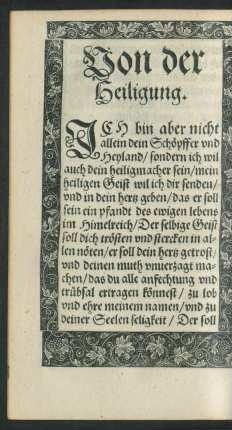 Von der
Heiligung.
ICH bin aber nicht
allein dein Schöpffer vnd
Heyland/ sondern ich wil
auch dein heiligmacher sein/mein
heiligen Geist wil ich dir senden/
vnd in dein hertz geben/das er soll
sein ein pfandt des ewigen lebens
im Himelreich/ Der selbige Geist
soll dich trösten vnd stercken in al-
len nöten/er soll dein hertz getrost/
vnd deinen muth vnuerzagt ma-
chen/das du alle anfechtung vnd
trübsal ertragen könnest/ zu lob
vnd ehre meinem namen/vnd zu
deiner Seelen seligkeit/ Der soll